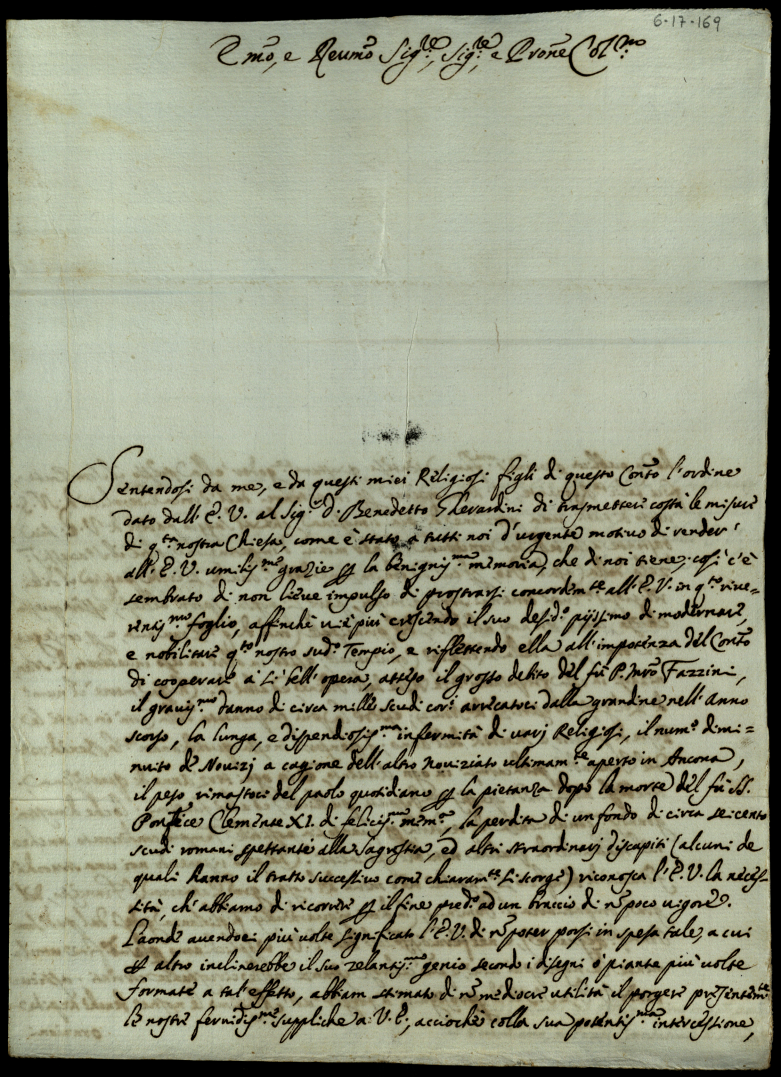 6-17-169
Emo, e Revmo Sig.re, Sig.re e Prone Col.mo
Sentendosi da me, e da questi miei Religiosi figli di questo Conto l'ordine
dato dall'E. V. al Sig. D. Benedetto Gherardini di trasmettere costà le misure
di q.ta nostra Chiesa, come è stato a tutti noi d'urgente motivo di render
all'E. V. umilis.me grazie la benignis.ma memoria, che di noi tiene; così c'è
sembrato di non lieve impulso di prostrarsi concordem.te all'E. V. in q.to rive=
rentis.mo foglio, affinchè vie più crescendo il suo desid.o pijssimo di modernare,
e nobilitare q.to nostro sud.o Tempio, e riflettendo ella all'impotenza del Conto
di cooperare a sì bell'opera, atteso il grosso debito del fù P. Mro Fazzini,
il gravis.mo danno di circa mille scudi cor.i arrecatoci dalla grandine nell'Anno
scorso, la lunga, e dispendiosis.ma infermità di varj Religiosi, il num.o dimi=
nuito de Novizj a cagione dell'altro Noviziato ultimam.te aperto in Ancona,
il peso rimastoci del paolo quotidiano la pietanza dopo la morte del fù SS.
Pontefice Clemente XI. di felicis.ma mem.a, la perdita di un fondo di circa seicento
scudi romani spettante alla Sagrestia, ed altri straordinarj discapiti (alcuni de
quali hanno il tratto successivo come chiaram.te si scorge) riconosca l'E. V. la neces=
sità, ch'abbiamo di ricorrere il fine pred.o ad un braccio di nō poco vigore.
Laonde avendoci più volte significato l'E. V. di nō poter porsi in spesa tale, a cui
altro inclinerebbe il suo zelantis.mo genio secondo i disegni ò piante più volte
formate a tal'effetto, abbiam stimato di nō mediocre utilità il porgere presentem.te
le nostre fervidis.me suppliche a V. E., acciochè colla sua potentis.ma intercessione,